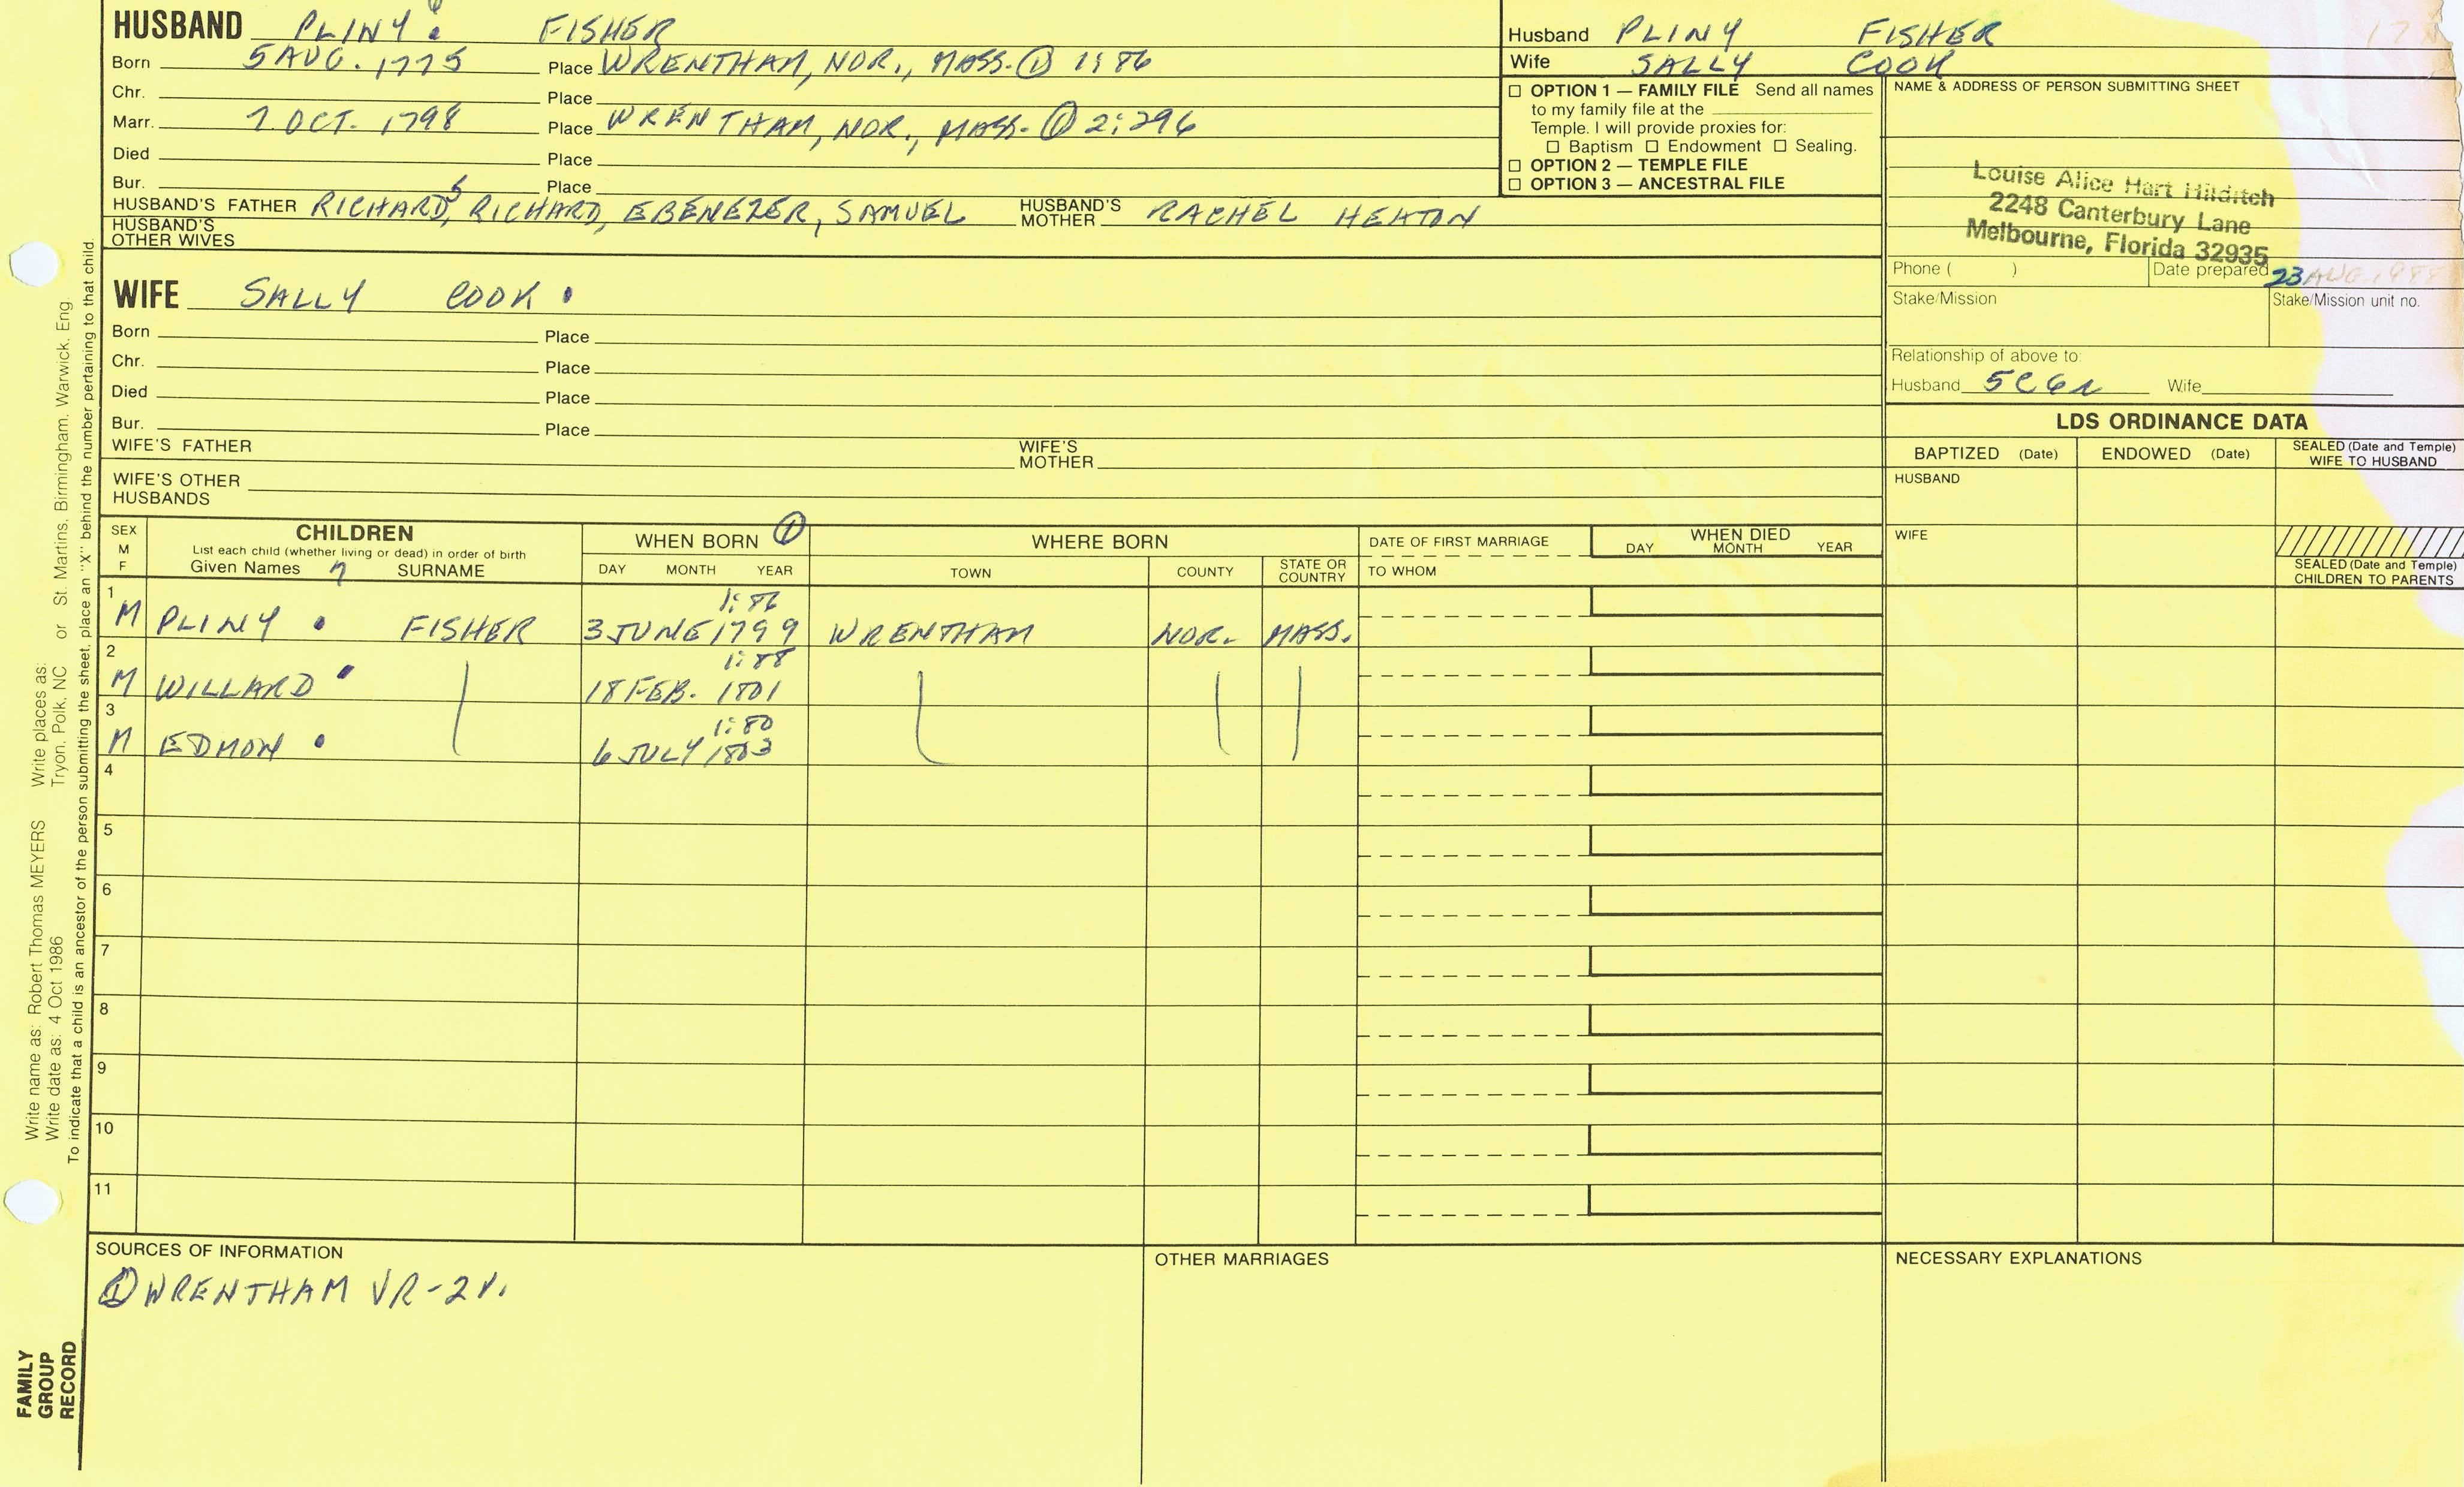 HUSBAND PLINY. FISHER
Born 5 AUG. 1775 Place WRENTHAM, NOR., MASS. ① 1:86
Chr. Place
Marr. 7 OCT. 1798 Place WRENTHAM, NOR., MASS. ① 2:296
Died Place
Bur. Place
HUSBAND'S FATHER RICHARD5, RICHARD, EBENEZER, SAMUEL HUSBAND'S MOTHER RACHEL HEATON
HUSBAND'S OTHER WIVES
Husband PLINY FISHER
Wife SALLY COOK
☐ OPTION 1 — FAMILY FILE Send all names
to my family file at the
Temple. I will provide proxies for:
☐ Baptism ☐ Endowment ☐ Sealing.
☐ OPTION 2 — TEMPLE FILE
☐ OPTION 3 — ANCESTRAL FILE
NAME & ADDRESS OF PERSON SUBMITTING SHEET
Louise Alice Hart Hilditch
2248 Canterbury Lane
Melbourne, Florida 32935
Phone ( ) Date prepared 23 AUG 1988
Stake/Mission Stake/Mission unit no.
Relationship of above to:
Husband 5C6R Wife
WIFE SALLY COOK.
Born Place
Chr. Place
Died Place
Bur. Place
WIFE'S FATHER WIFE'S MOTHER
WIFE'S OTHER HUSBANDS
LDS ORDINANCE DATA
BAPTIZED (Date) ENDOWED (Date) SEALED (Date and Temple) WIFE TO HUSBAND
HUSBAND
WIFE
SEALED (Date and Temple) CHILDREN TO PARENTS
SEX M F
CHILDREN
List each child (whether living or dead) in order of birth
Given Names 7 SURNAME
WHEN BORN ①
DAY MONTH YEAR
WHERE BORN
TOWN COUNTY STATE OR COUNTRY
DATE OF FIRST MARRIAGE
TO WHOM
WHEN DIED
DAY MONTH YEAR
1 1:86
M PLINY . FISHER 3 JUNE 1799 WRENTHAM NOR. MASS.
2 1:88
M WILLARD . 18 FEB. 1801
3 1:80
M EDMON . 6 JULY 1803
4
5
6
7
8
9
10
11
SOURCES OF INFORMATION
① WRENTHAM VR-2V.
OTHER MARRIAGES
NECESSARY EXPLANATIONS
Write name as: Robert Thomas MEYERS Write places as:
Write date as: 4 Oct 1986 Tryon, Polk, NC or St. Martins, Birmingham, Warwick, Eng
To indicate that a child is an ancestor of the person submitting the sheet, place an "X" behind the number pertaining to that child.
FAMILY
GROUP
RECORD